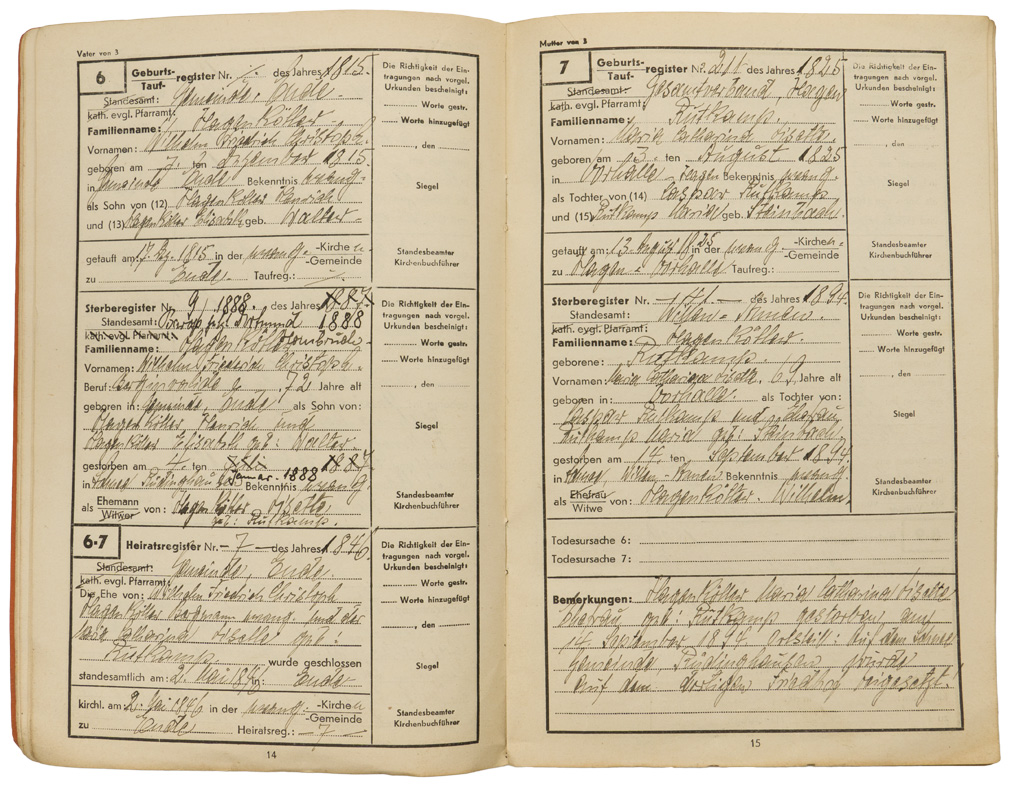 Vater von 3
6
Geburts-
Tauf-
register Nr. -/- des Jahres 1815.
Standesamt: Gemeinde, Ende.
kath. evgl. Pfarramt:
Familienname: Hagenkötter
Vornamen: Wilhelm Friedrich Christoph
geboren am 7. ten Dezember 1815.
in Gemeinde Ende Bekenntnis evang.-
als Sohn von (12) Hagenkötter Heinrich
und (13) Hagenkötter Elisabeth geb. Walter
getauft am: 17. Dez. 1815 in der evang.-
-Kirche
-Gemeinde
zu Ende Taufreg.: -/-
Die Richtigkeit der Ein-
tragungen nach vorgel.
Urkunden bescheinigt:
Worte gestr.
Worte hinzugefügt
, den
Siegel
Standesbeamter
Kirchenbuchführer
Sterberegister Nr. 9/1888. , des Jahres 1887.
Standesamt: 1888
kath. evgl. Pfarramt:
Familienname: Hagenkötter
Vornamen: Wilhelm Friedrich Christoph.
Beruf: 72 Jahre alt
geboren in: Gemeinde, Ende als Sohn von:
Hagenkötter, Heinrich und
Hagenkötter Elisabeth geb: Walter
gestorben am 4. ten Juli 1887.
Januar. 1888
in Bekenntnis evang.
als Ehemann
Witwer
von: Hagenkötter Lisette
geb: Rutkamp.
Die Richtigkeit der Ein-
tragungen nach vorgel.
Urkunden bescheinigt:
Worte gestr.
Worte hinzugefügt
, den
Siegel
Standesbeamter
Kirchenbuchführer
6-7
Heiratsregister Nr. -7- des Jahres 1846.
Standesamt: Gemeinde, Ende.
kath. evgl. Pfarramt:
Die Ehe von: Wilhelm Friedrich Christoph
Hagenkötter Bergmann evang: und der
Catharina Lisette geb:
Rutkamp wurde geschlossen
standesamtlich am: 2. Mai 1846 in: Ende
kirchl. am: 2. Mai 1846 in der evang.-
-Kirche
-Gemeinde
zu Ende Heiratsreg.: -7-
Die Richtigkeit der Ein-
tragungen nach vorgel.
Urkunden bescheinigt:
Worte gestr.
Worte hinzugefügt
, den
Siegel
Standesbeamter
Kirchenbuchführer
14
Mutter von 3
7
Geburts-
Tauf-
register Nr. des Jahres 1825
Standesamt: Gesamtverband, Hagen
kath. evgl. Pfarramt:
Familienname: Rutkamp.
Vornamen: Maria Catharina Lisette.
geboren am 3. ten August 1825
in Vorhalle - Hagen Bekenntnis evang.
als Tochter von (14) Caspar Rutkamp
und (15) Rutkamp Maria geb. Steinbach.
getauft am: 13. August 1825 in der evang.
-Kirche
-Gemeinde
zu Hagen = Vorhalle Taufreg.:
Die Richtigkeit der Ein-
tragungen nach vorgel.
Urkunden bescheinigt:
Worte gestr.
Worte hinzugefügt
, den
Siegel
Standesbeamter
Kirchenbuchführer
Sterberegister Nr. des Jahres 1894.
Standesamt: Witten = Annen.
kath. evgl. Pfarramt:
Familienname: Hagenkötter.
geborene: Rutkamp.
Vornamen: Maria Catharina Lisette. 69 Jahre alt
geboren in: Vorhalle. als Tochter von:
Caspar Rutkamp und Ehefrau
Rutkamp Maria geb: Steinbach.
gestorben am 14. ten September 1894.
in Witten, Annen Bekenntnis evang.
als Ehefrau
Witwe
von: Hagenkötter. Wilhelm
Die Richtigkeit der Ein-
tragungen nach vorgel.
Urkunden bescheinigt:
Worte gestr.
Worte hinzugefügt
, den
Siegel
Standesbeamter
Kirchenbuchführer
Todesursache 6:
Todesursache 7:
Bemerkungen: Hagenkötter Maria Catharina Lisette
Ehefrau geb: Rutkamp gestorben am
14. September 1894 auf dem
gemeinde, Rüdinghausen, wurde
auf dem dortigen Friedhof beigesetzt!
15